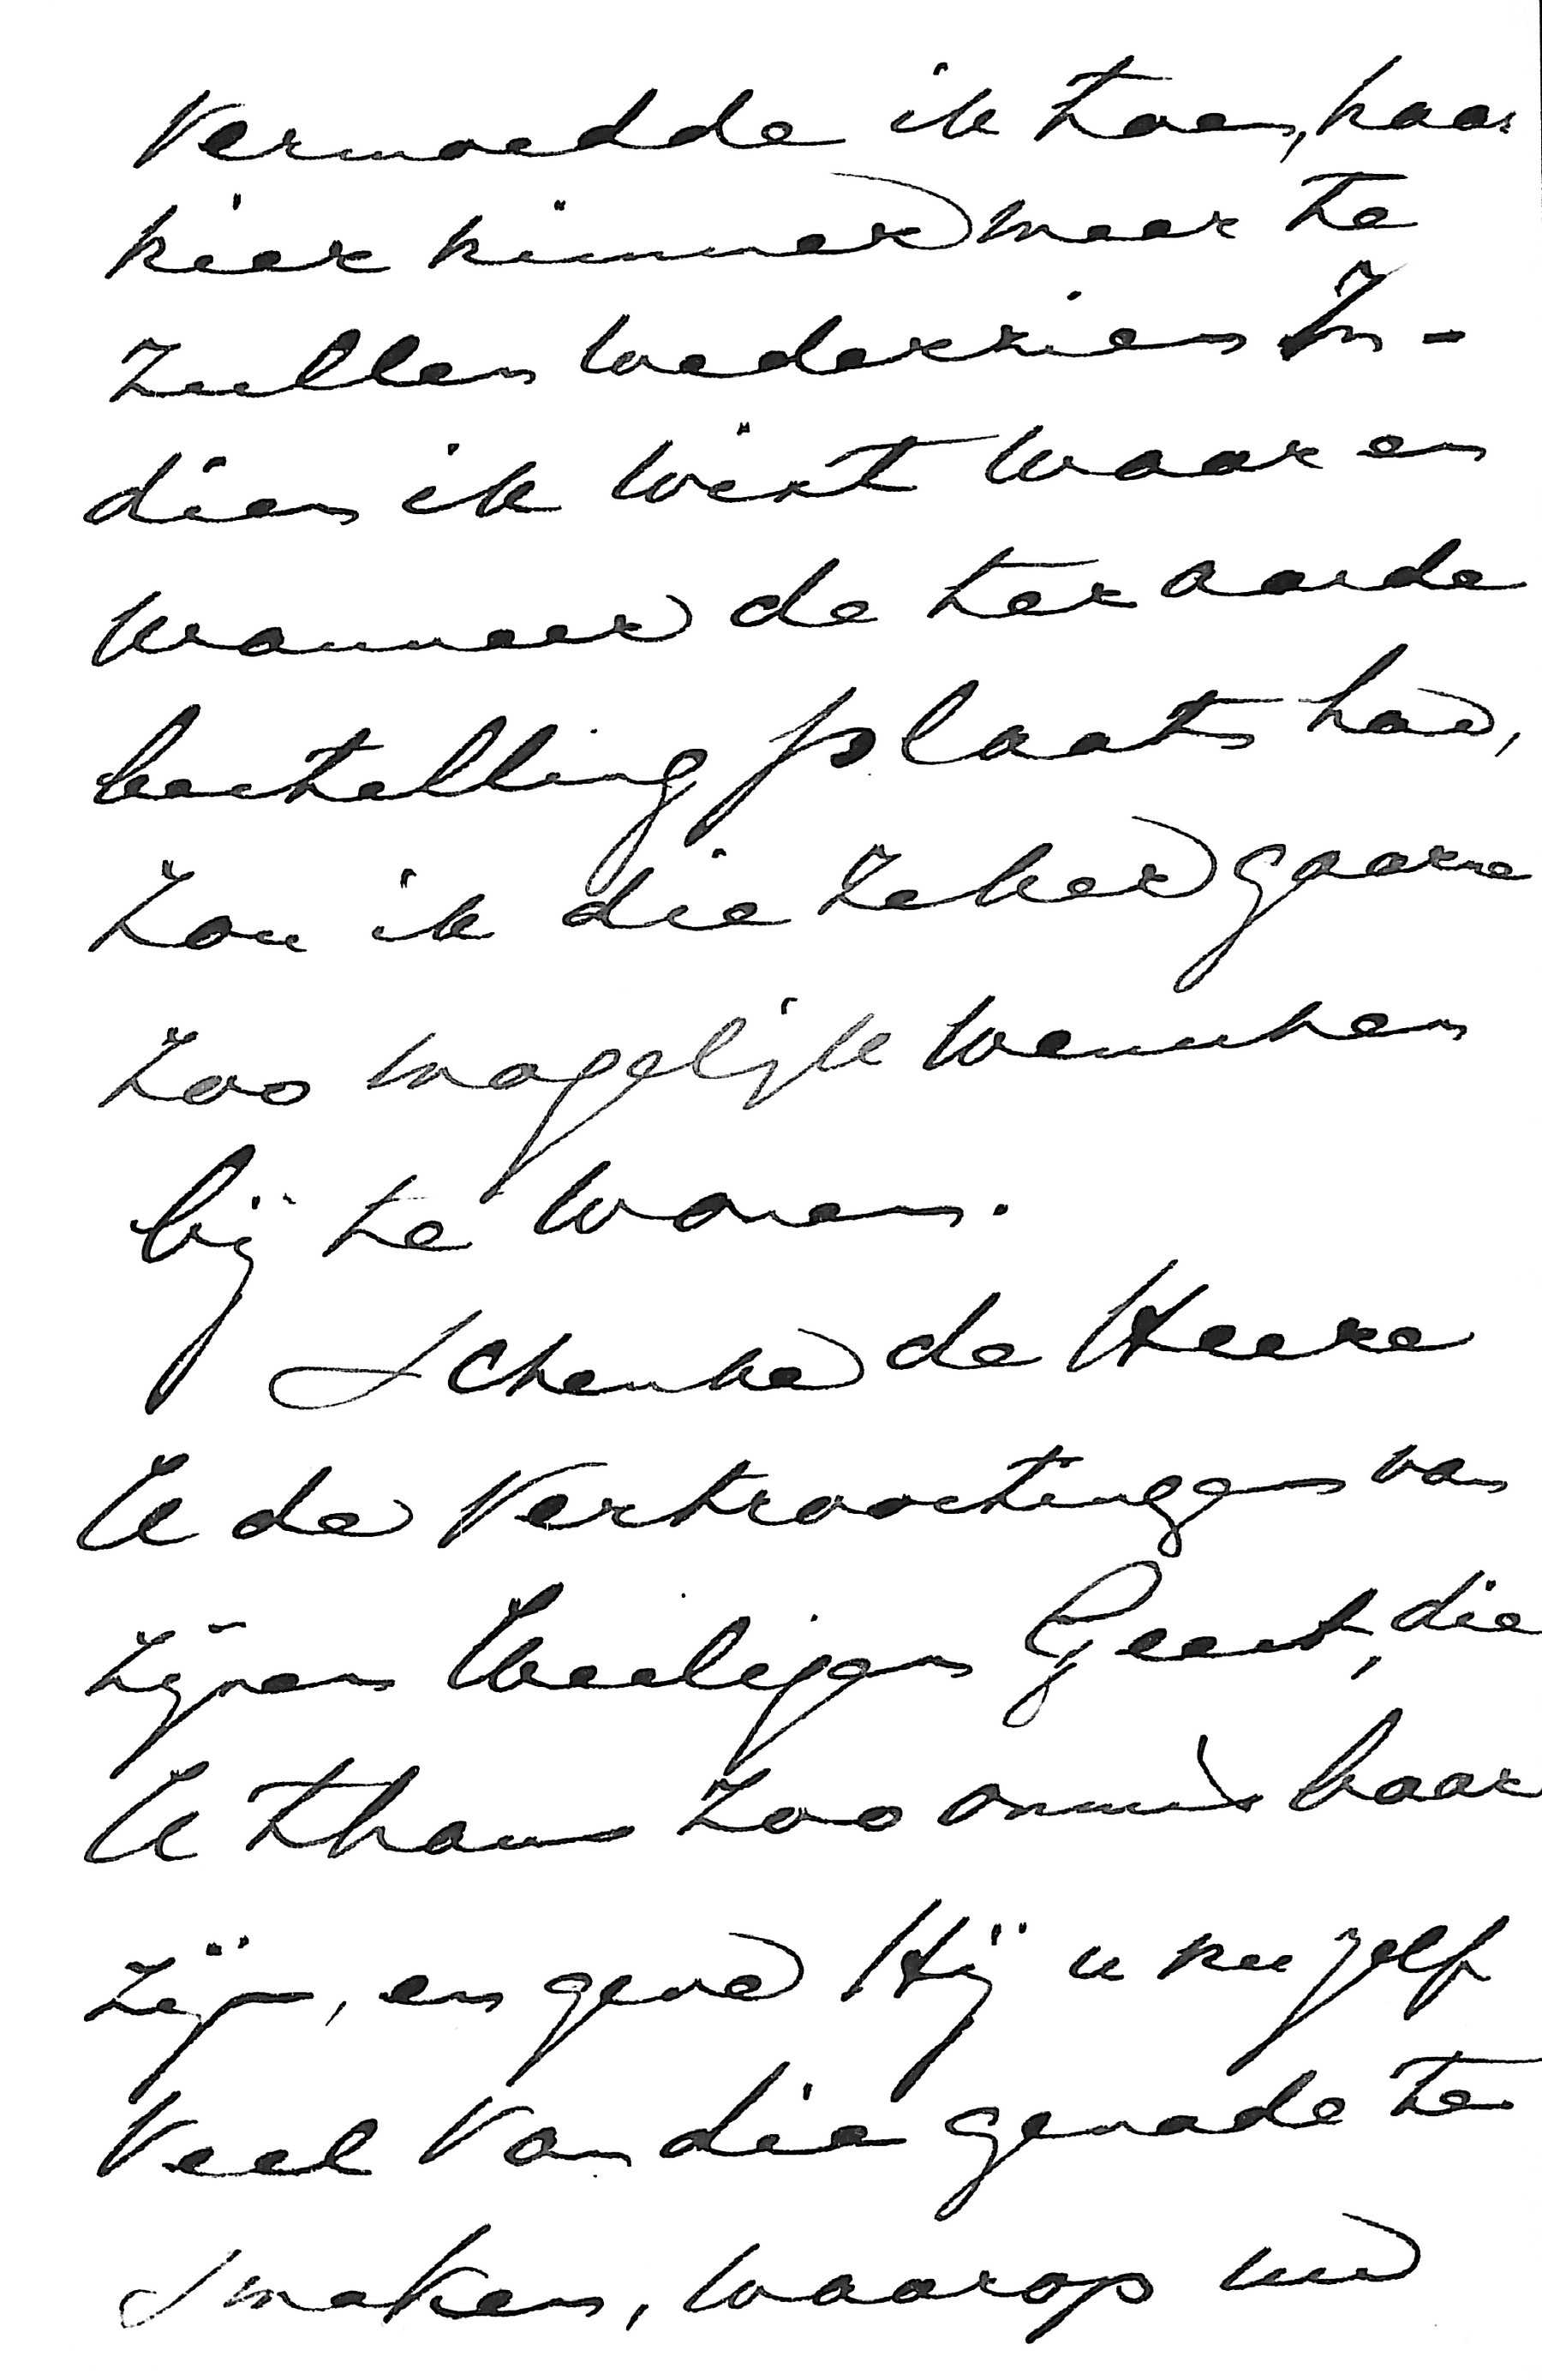 vermoedde ik toen, haar
hier nimmer meer te
zullen wederzien. In-
dien ik wist waar en
wanneer de ter aarde
bestelling plaats had,
zou ik die zeker gaarne
zoo mogelijk wenschen
bij te wonen.
Schenke de Heere
U de vertroostingen van
zijnen Heiligen Geest, die
U thans zoo onmisbaar
zijn, en geve Hij u zelf
veel van die genade te
smaken, waarop uw